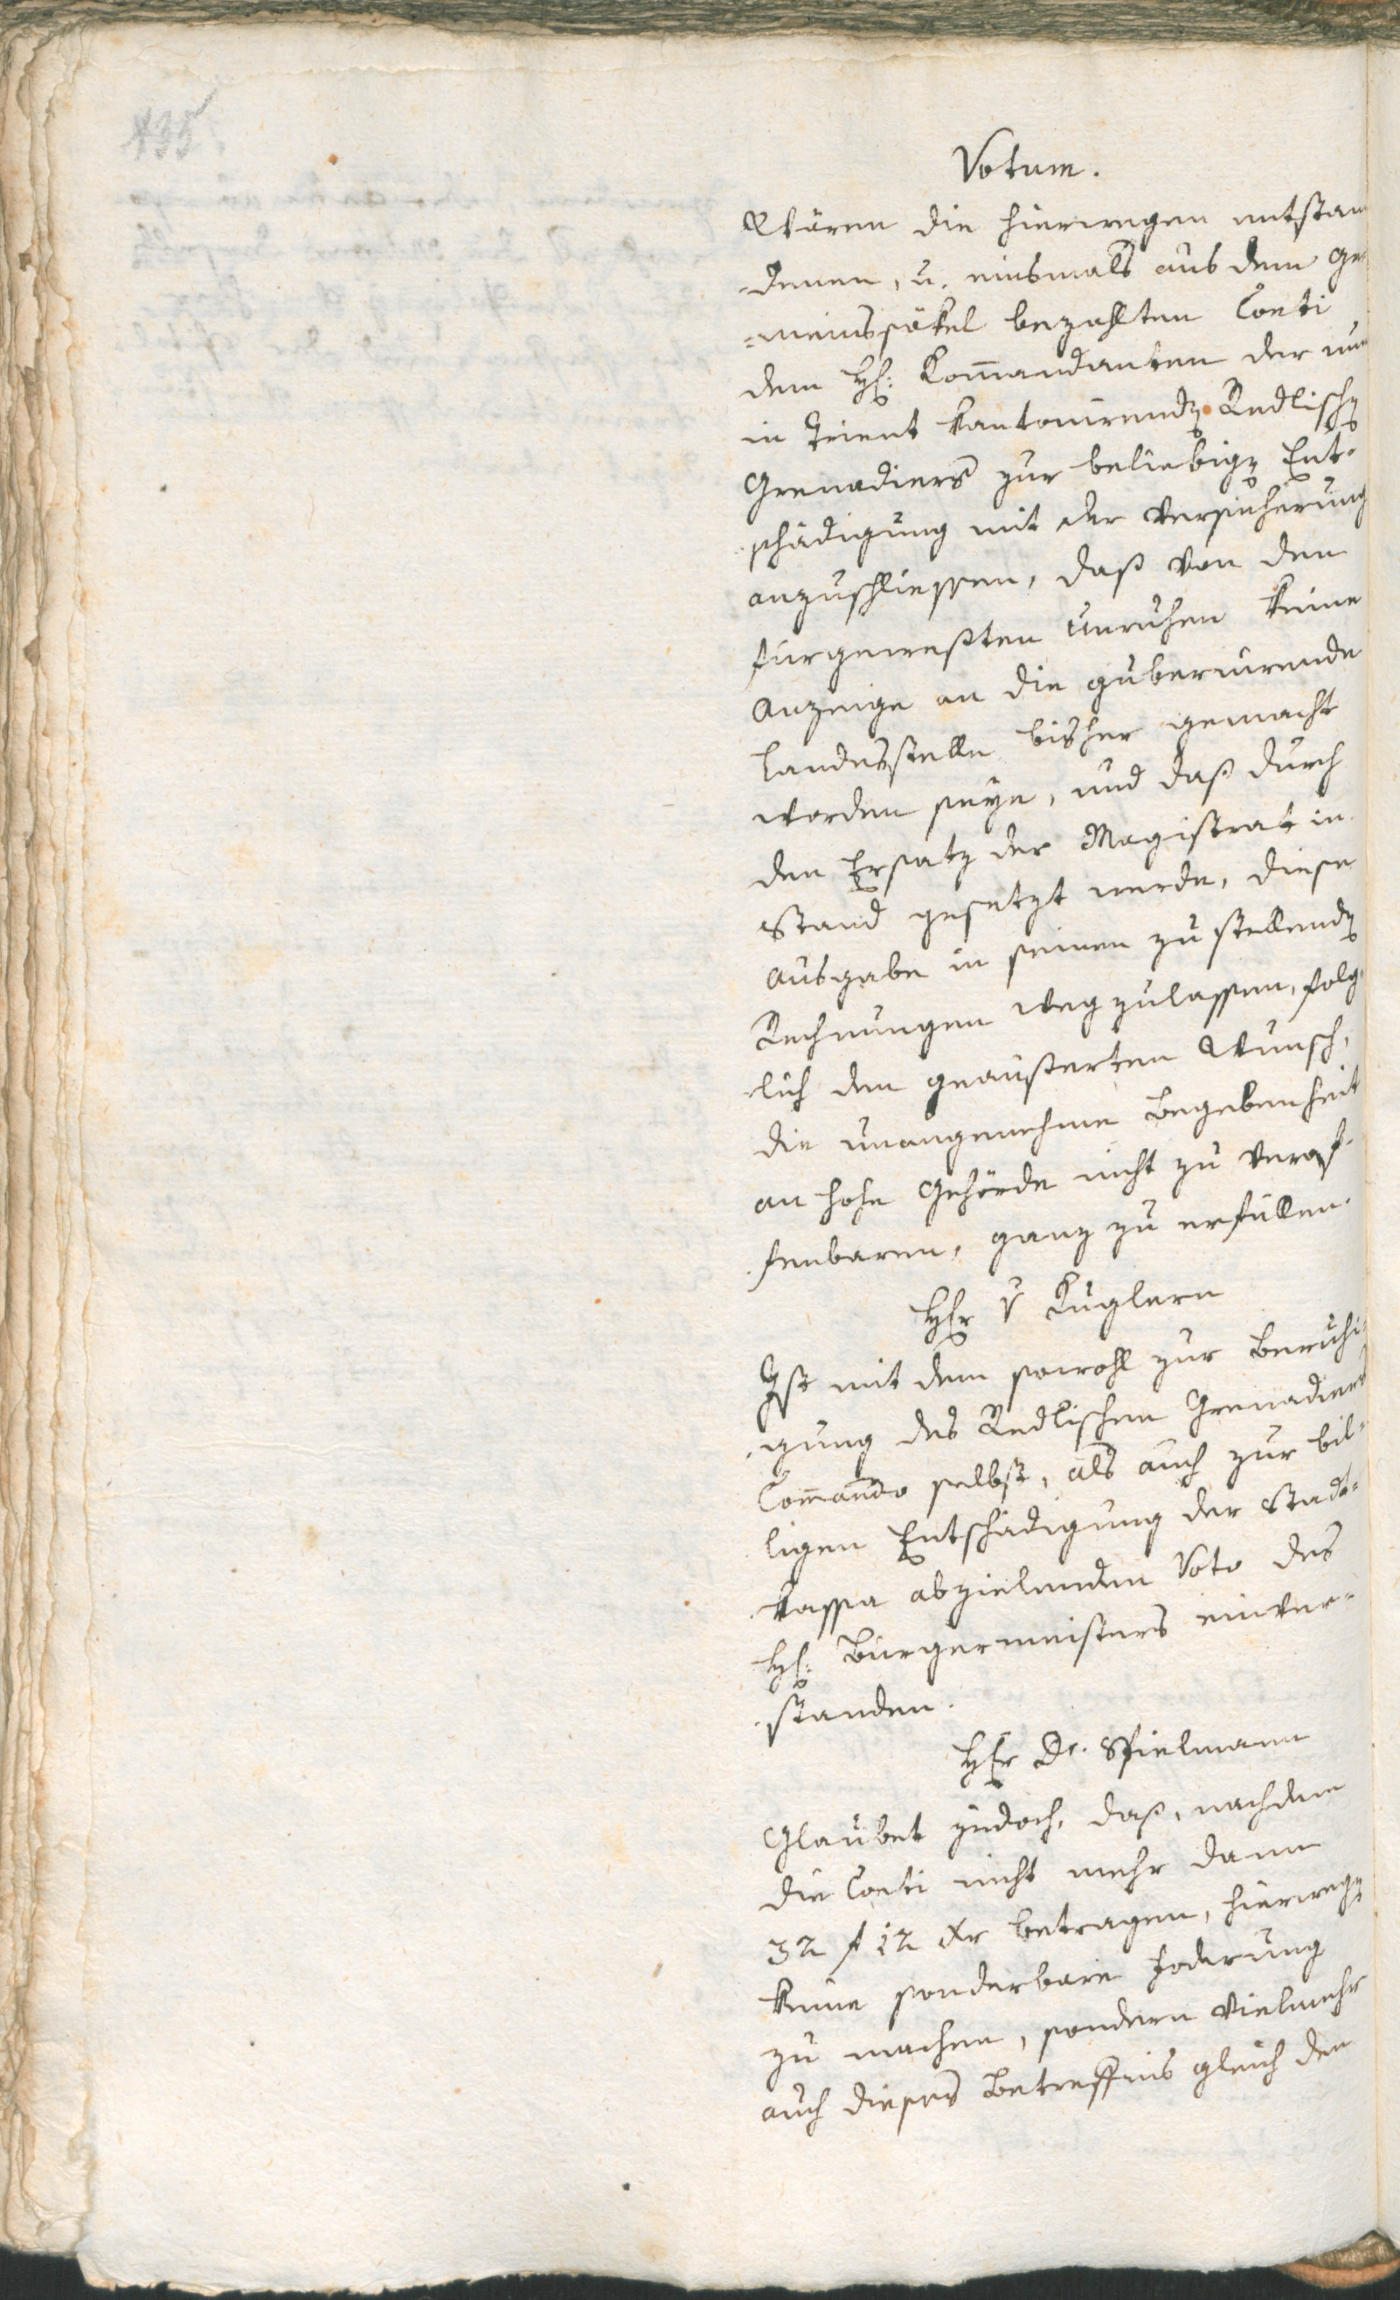 435.
Votum.
Wären die hierwegen entstan
-denen, u. einsmals aus dem ge-
=meinssäkel bezahlten Conti
dem H: Kom̄andanten der nun
in Trient kantonirendẽ Redlischẽ
Grenadiers zur beliebigẽ Ent-
schädigung mit der Versicherung
anzuschliessen, daß von den
fürgewesten Unruhen keine
Anzeige an die gubernirende
Landesstelle bisher gemacht
worden seye, und daß durch
den Ersatz der Magistrat in
Stand gesetzt werde, diese
Ausgabe in seinen zu stellendẽ
Rechnungen wegzulassen, folg-
-lich den geäusserten Wunsch,
die unangenehme Begebenheit
an hohe Gehörde nicht zu verof-
fenbaren, ganz zu erfüllen.
Hr v Kuglern
Ist mit dem sowohl zur Beruhi-
-gung des Redlischen Grenadiers
Com̄ando selbst, als auch zur bil-
ligen Entschädigung der Stadt-
kassa abzielenden Voto des
H: Bürgermeisters einver-
standen.
Hr Dr. Spielmann
Glaubet jedoch, daß, nachdem
die Conti nicht mehr dann
32 f 12 xr betragen, hierwegẽ
keine sonderbare Foderung
zu machen, sondern vielmehr
auch dieses Betreffnis gleich den